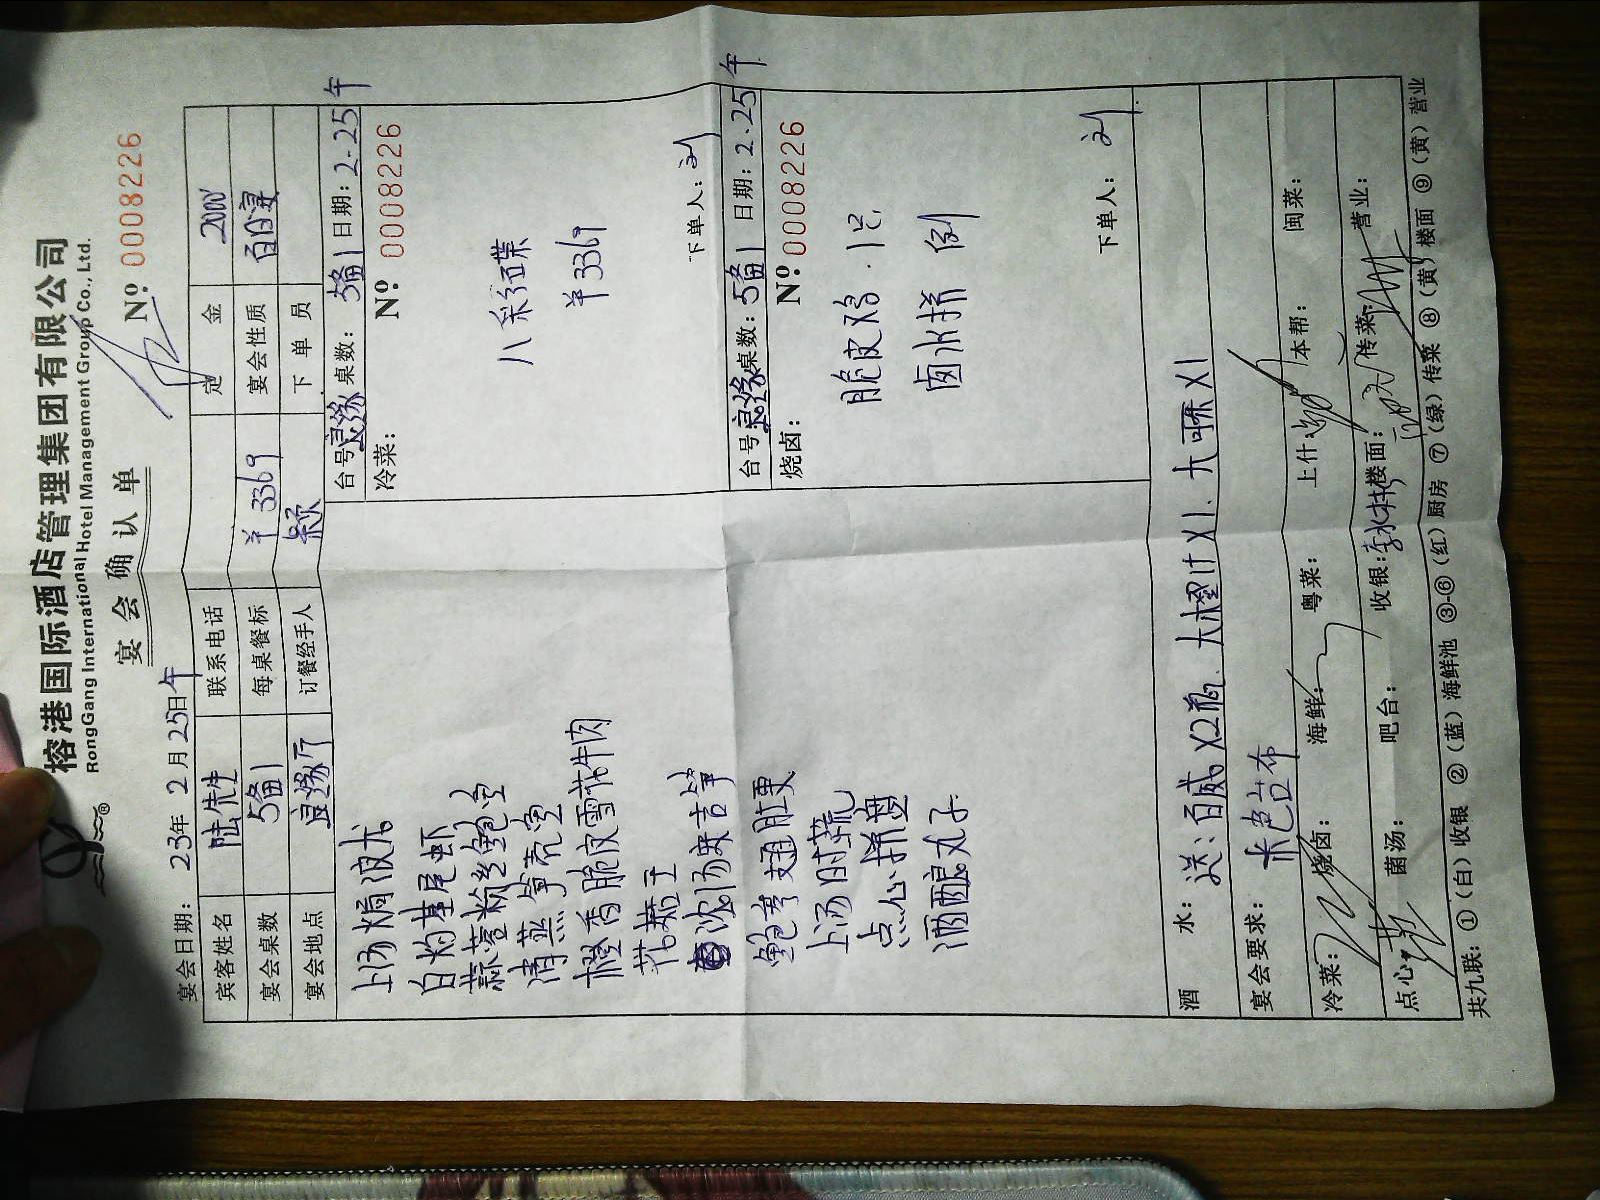 榕港国际酒店管理集团有限公司
RongGang International Hotel Management Group Co., Ltd.
宴会确认单
№ 0008226
宴会日期: 23年 2月 25日午
宾客姓名 陆先生 联系电话 定金 2000
宴会桌数 5备1 每桌餐标 ¥3369 宴会性质 百日宴
宴会地点 良缘厅 订餐经手人 下单员
上汤焗波龙
白灼基尾虾
蒜蓉粉丝鲍
清蒸笋壳
橙香脆皮雪花牛肉
花菇
浓汤
鲍参翅肚更
上汤时蔬
点心拼盘
酒酿丸子
台号: 良缘 桌数: 5备1 日期: 2.25午
冷菜: № 0008226
八彩碟
¥3369
下单人: 刘
台号: 良缘 桌数: 5备1 日期: 2.25午
烧卤: № 0008226
脆皮鸡.1只
卤水拼 例
下单人: 刘
酒水: 送:百威X2瓶、大橙汁X1、大可乐X1
宴会要求: 米色台布
冷菜: 烧卤: 海鲜: 粤菜: 上什: 本帮: 闽菜:
点心: 菌汤: 吧台: 收银: 楼面: 传菜: 营业:
共九联: ①(白)收银 ②(蓝)海鲜池 ③-⑥(红)厨房 ⑦(绿)传菜 ⑧(黄)楼面 ⑨(黄)营业